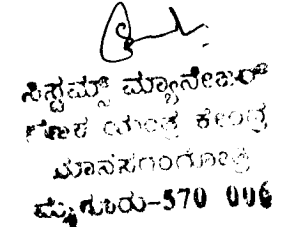 ಸಿಸ್ಟಮ್ಸ್ ಮ್ಯಾನೇಜರ್
ಗಣಕ ಯಂತ್ರ ಕೇಂದ್ರ
ಮಾನಸಗಂಗೋತ್ರಿ
ಮೈಸೂರು-570 006